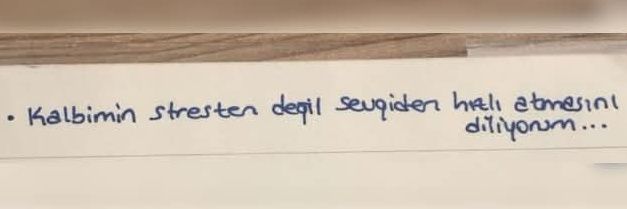 • Kalbimin stresten değil sevgiden hızlı atmasını
diliyorum...